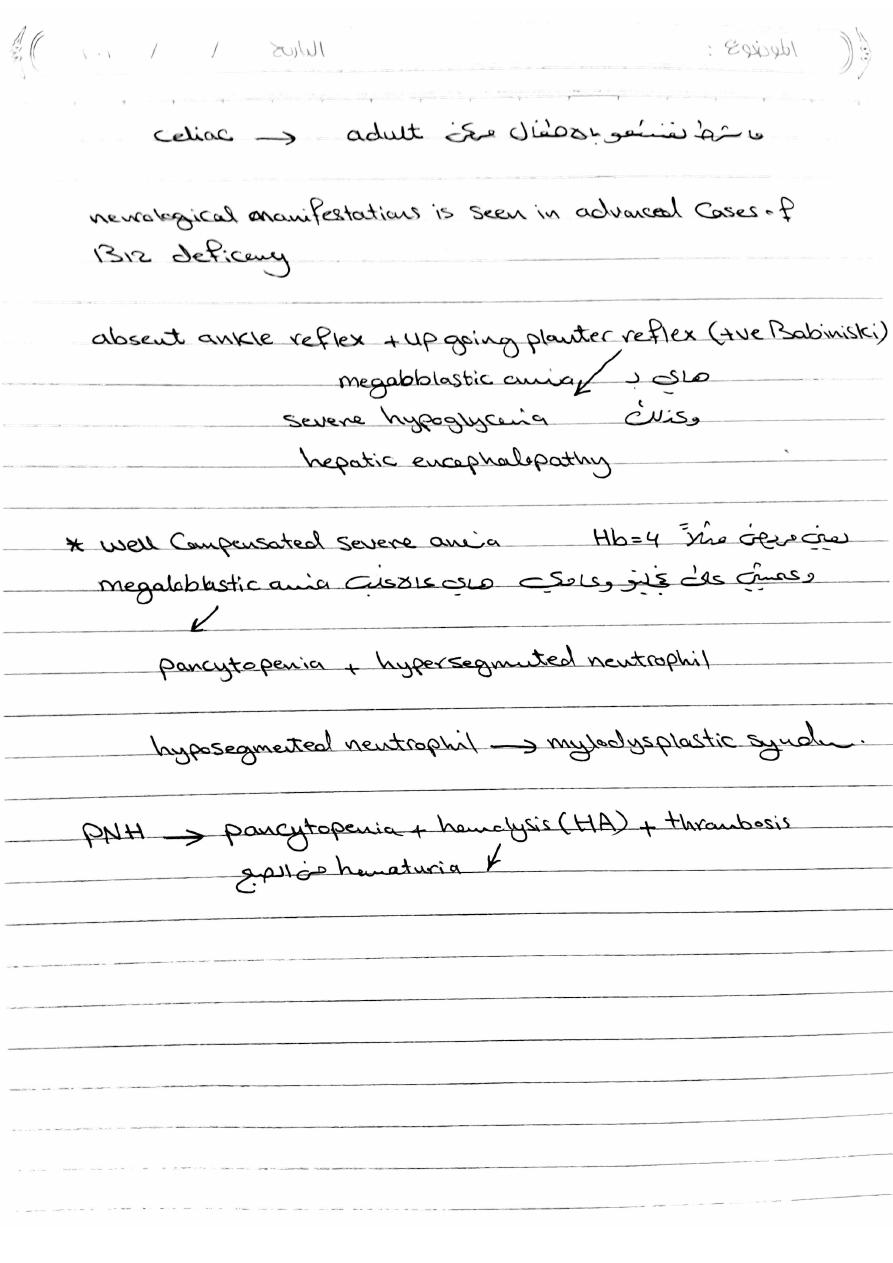 الموضوع : التاريخ / /
celiac → adult ماشرط نشتشفو بالاطفال ممكن
neurological manifestations is seen in advanced cases of
B12 deficeny
absent ankle reflex + up going planter reflex (+ve Babiniski)
هاي ب megabblastic amia
وكذلك severe hypoglycemia
hepatic encephalopathy
* well compensated severe anemia Hb=4 يعني مريض مثلاً
megaloblastic amia هاي
pancytopenia + hypersegmented neutrophil
hyposegmented neutrophil → mylodysplastic syndrom.
PNH → pancytopenia + hemolysis (HA) + thrombosis
hematuria من الصبح